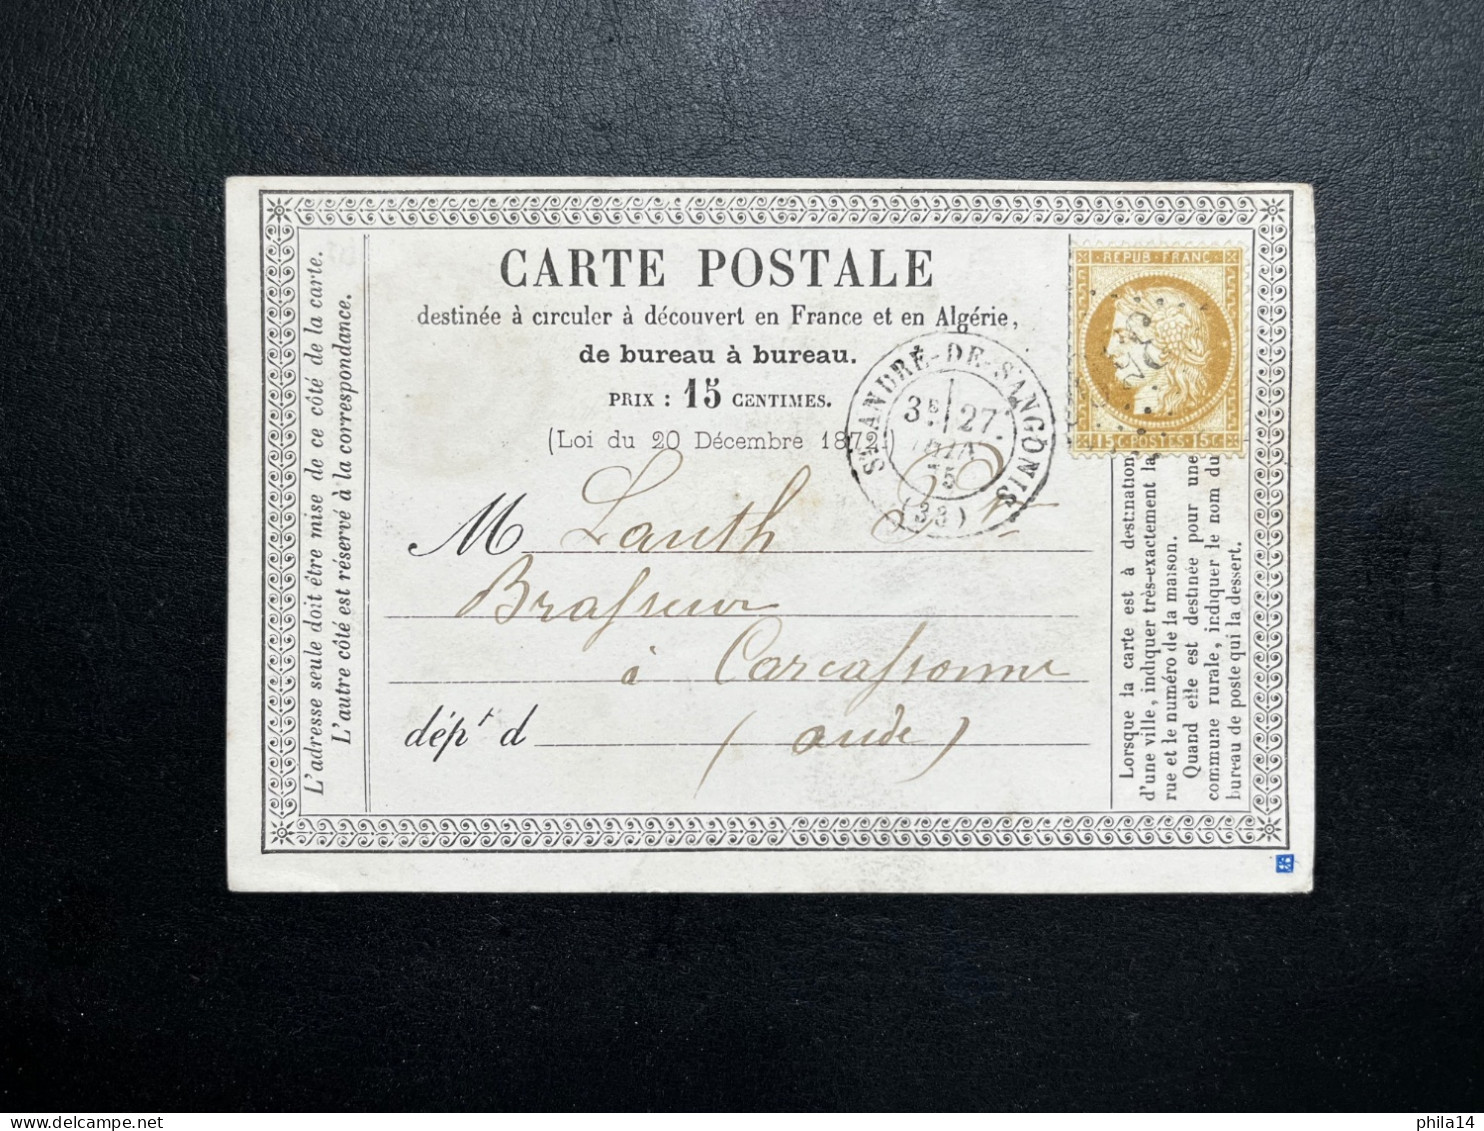 CARTE POSTALE
destinée à circuler à découvert en France et en Algérie,
de bureau à bureau.
PRIX : 15 CENTIMES.
(Loi du 20 Décembre 1872.)
REPUB. FRANC.
15 C. POSTES. 15 C.
ST ANDRÉ-DE-SANGONIS
3E 27
75
(33)
M Lauth
Brasseur
à Carcassonne
dépt d (aude)
L'adresse seule doit être mise de ce côté de la carte.
L'autre côté est réservé à la correspondance.
Lorsque la carte est à destination
d'une ville, indiquer très-exactement la
rue et le numéro de la maison.
Quand elle est destinée pour une
commune rurale, indiquer le nom du
bureau de poste qui la dessert.
phila14